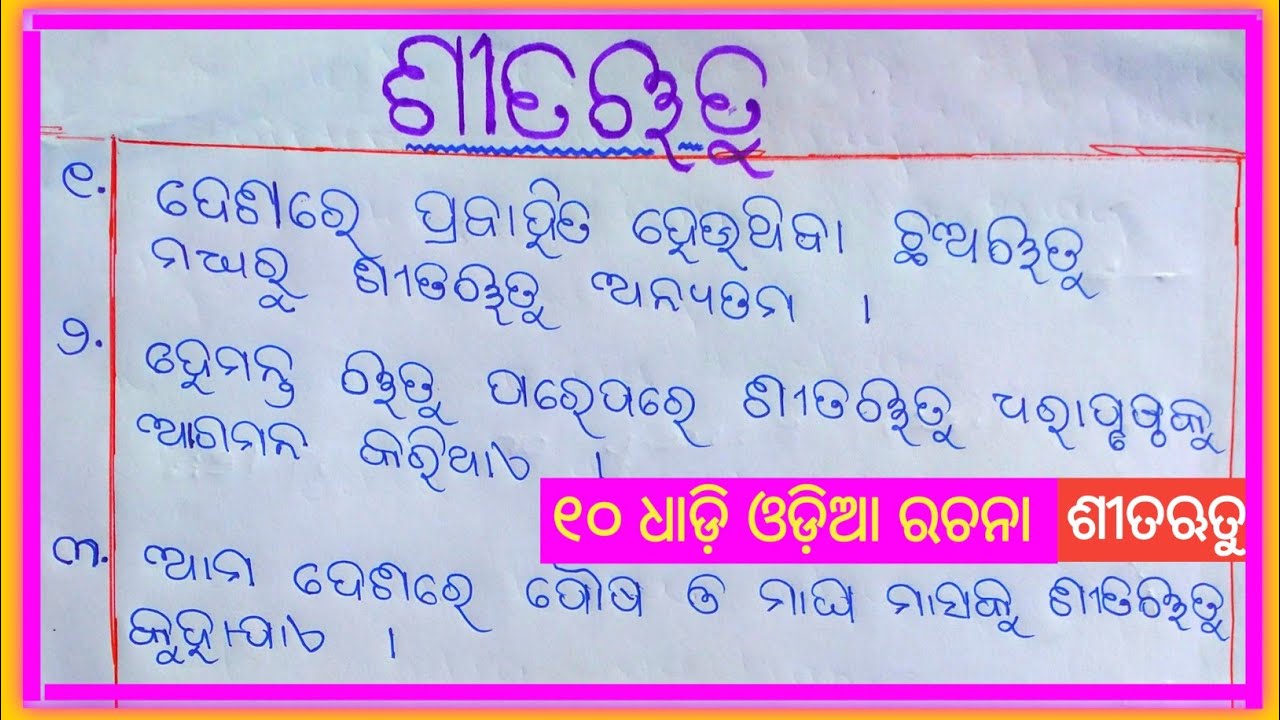 ଶୀତଋତୁ
୧. ଦେଶରେ ପ୍ରବାହିତ ହେଉଥିବା ଛଅଋତୁ
ମଧ୍ୟରୁ ଶୀତଋତୁ ଅନ୍ୟତମ ।
୨. ହେମନ୍ତ ଋତୁ ପରେପରେ ଶୀତଋତୁ ଧରାପୃଷ୍ଠକୁ
ଆଗମନ କରିଥାଏ ।
୧୦ ଧାଡ଼ି ଓଡ଼ିଆ ରଚନା ଶୀତଋତୁ
୩. ଆମ ଦେଶରେ ପୌଷ ଓ ମାଘ ମାସକୁ ଶୀତଋତୁ
କୁହାଯାଏ ।